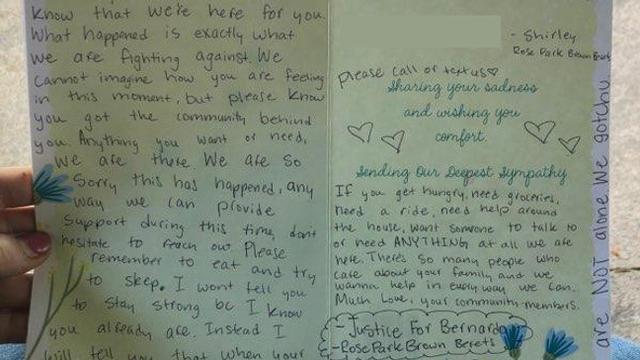 know that we're here for you.
What happened is exactly what
we are fighting against. We
cannot imagine how you are feeling
in this moment, but please know
you got the community behind
you. Anything you want or need,
we are there. We are so
sorry this has happened, any
way we can provide
support during this time, don't
hesitate to reach out. Please
remember to eat and try
to sleep. I wont tell you
to stay strong bc I know
you already are. Instead I
will tell you that when your
- Shirley
Rose Park Brown Berets
Please call or text us
Sharing your sadness
and wishing you
comfort.
Sending Our Deepest Sympathy
If you get hungry, need groceries,
need a ride, need help around
the house, want someone to talk to
or need ANYTHING at all we are
here. There's so many people who
care about your family and we
wanna help in every way we can.
Much Love, your community members.
- Justice For Bernardo
- Rose Park Brown Berets
are NOT alone We gotchu